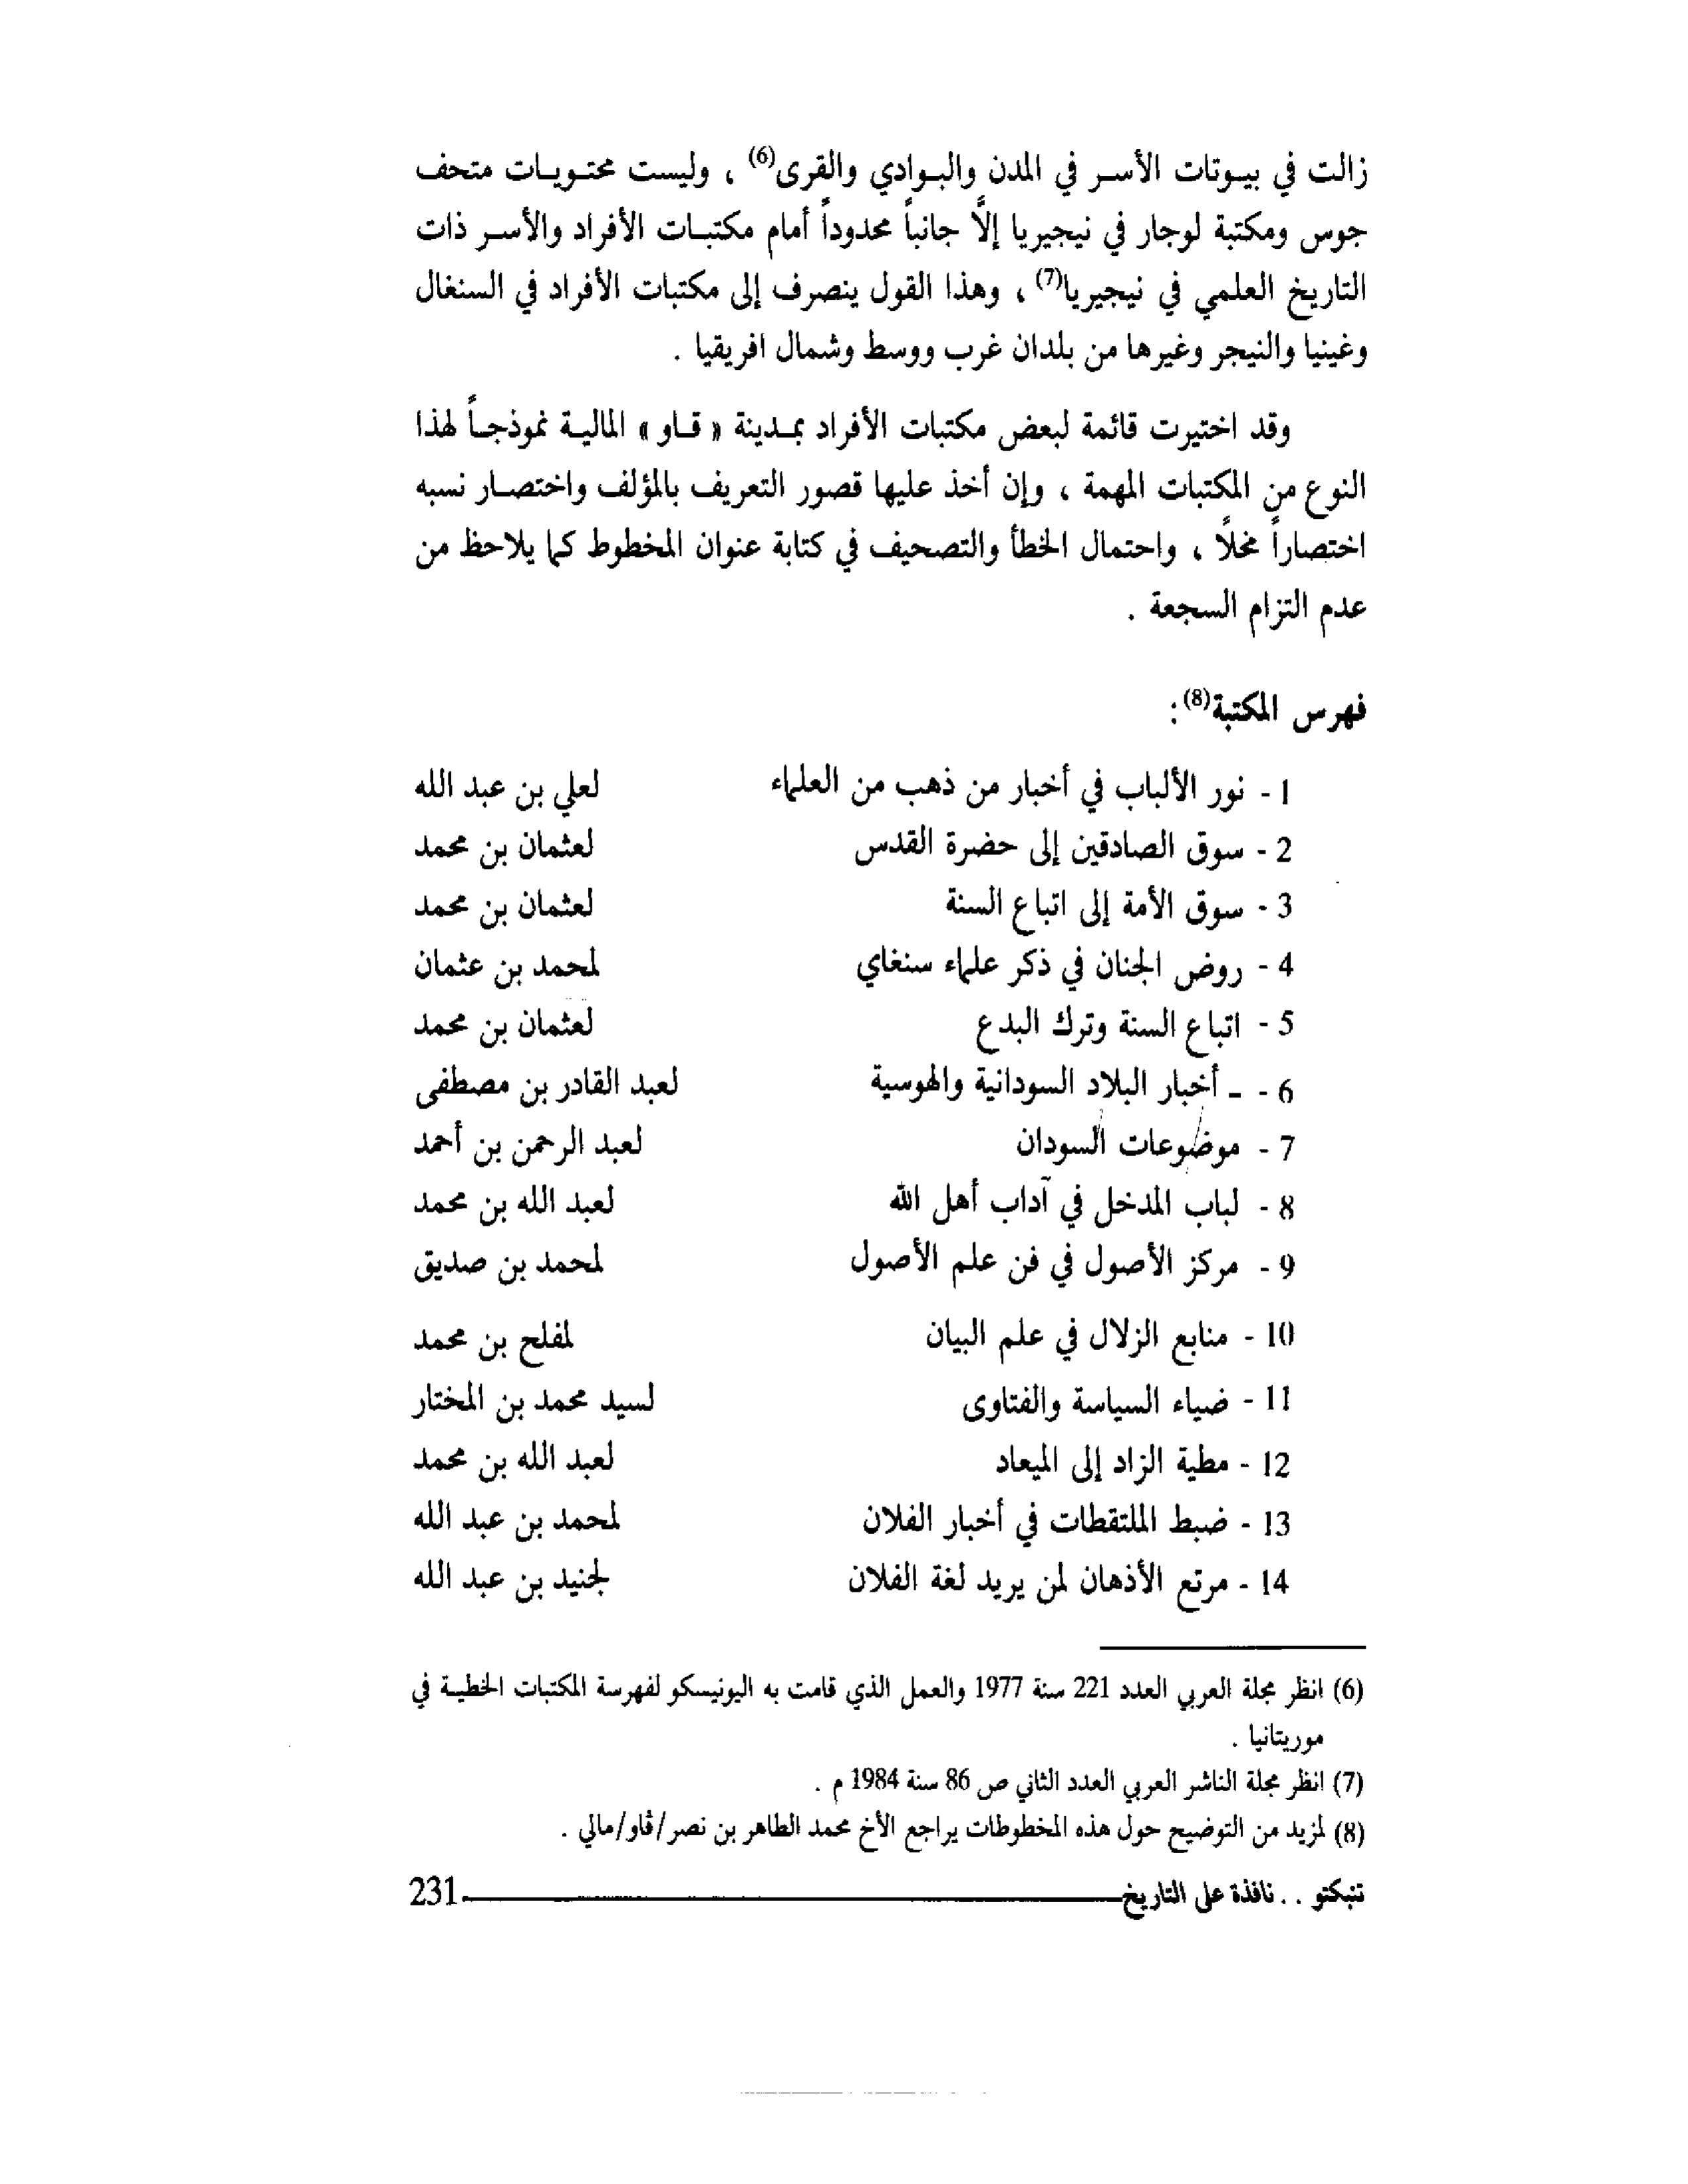 زالت في بيـوتات الأسـر في المدن والبـوادي والقرى(6) ، وليست محتـويـات متحف
جوس ومكتبة لوجار في نيجيريا إلاَّ جانباً محدوداً أمام مكتبـات الأفراد والأسـر ذات
التاريخ العلمي في نيجيريا(7) ، وهذا القول ينصرف إلى مكتبات الأفراد في السنغال
وغينيا والنيجر وغيرها من بلدان غرب ووسط وشمال افريقيا .
وقد اختيرت قائمة لبعض مكتبات الأفراد بمـدينة « قـاو » الماليـة نموذجـاً لهذا
النوع من المكتبات المهمة ، وإن أخذ عليها قصور التعريف بالمؤلف واختصـار نسبه
اختصاراً مخلاً ، واحتمال الخطأ والتصحيف في كتابة عنوان المخطوط كما يلاحظ من
عدم التزام السجعة .
فهرس المكتبة(8) :
1 - نور الألباب في أخبار من ذهب من العلماء لعلي بن عبد الله
2 - سوق الصادقين إلى حضرة القدس لعثمان بن محمد
3 - سوق الأمة إلى اتباع السنة لعثمان بن محمد
4 - روض الجنان في ذكر علماء سنغاي لمحمد بن عثمان
5 - اتباع السنة وترك البدع لعثمان بن محمد
6 - ـ أخبار البلاد السودانية والهوسية لعبد القادر بن مصطفى
7 - موضوعات السودان لعبد الرحمن بن أحمد
8 - لباب المدخل في آداب أهل الله لعبد الله بن محمد
9 - مركز الأصول في فن علم الأصول لمحمد بن صديق
10 - منابع الزلال في علم البيان لمفلح بن محمد
11 - ضياء السياسة والفتاوى لسيد محمد بن المختار
12 - مطية الزاد إلى الميعاد لعبد الله بن محمد
13 - ضبط الملتقطات في أخبار الفلان لمحمد بن عبد الله
14 - مرتع الأذهان لمن يريد لغة الفلان لجنيد بن عبد الله
(6) انظر مجلة العربي العدد 221 سنة 1977 والعمل الذي قامت به اليونيسكو لفهرسة المكتبات الخطيـة في
موريتانيا .
(7) انظر مجلة الناشر العربي العدد الثاني ص 86 سنة 1984 م .
(8) لمزيد من التوضيح حول هذه المخطوطات يراجع الأخ محمد الطاهر بن نصر/ڤاو/مالي .
تنبكتو . . نافذة على التاريخ 231